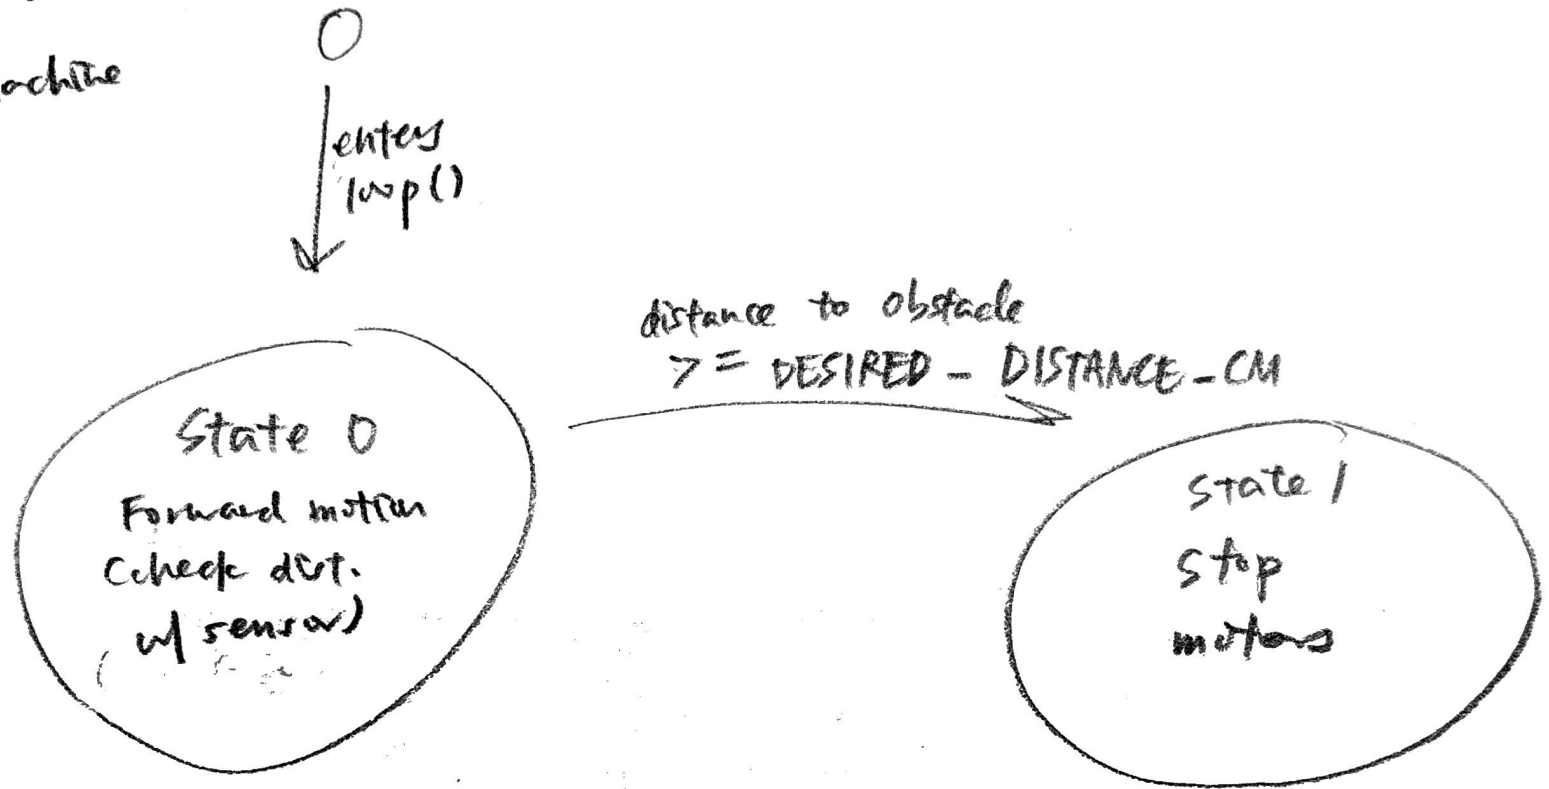 achine
enters
loop()
distance to obstacle
>= DESIRED_DISTANCE_CM
State 0
Forward motion
(check dist.
w/ sensor)
State 1
Stop
motors